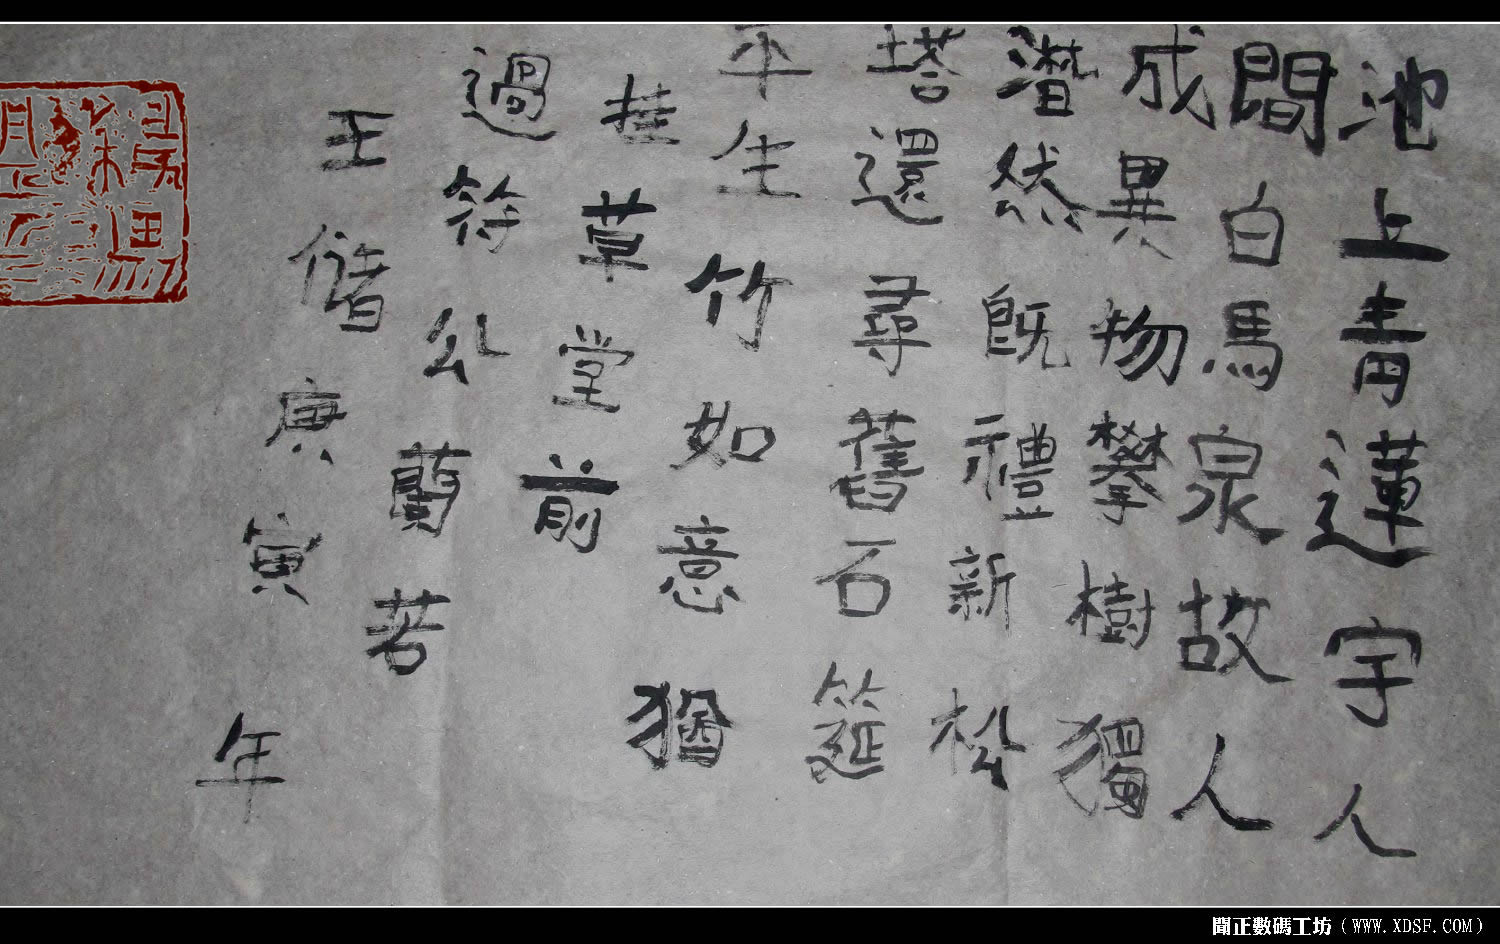 池上青蓮宇人
間白馬泉故人
成異物攀樹獨
潸然既禮新松
塔還尋舊石筵
平生竹如意猶
挂草堂前
過符公蘭若
王儲庚寅年
聞正數碼工坊（WWW.XDSF.COM）